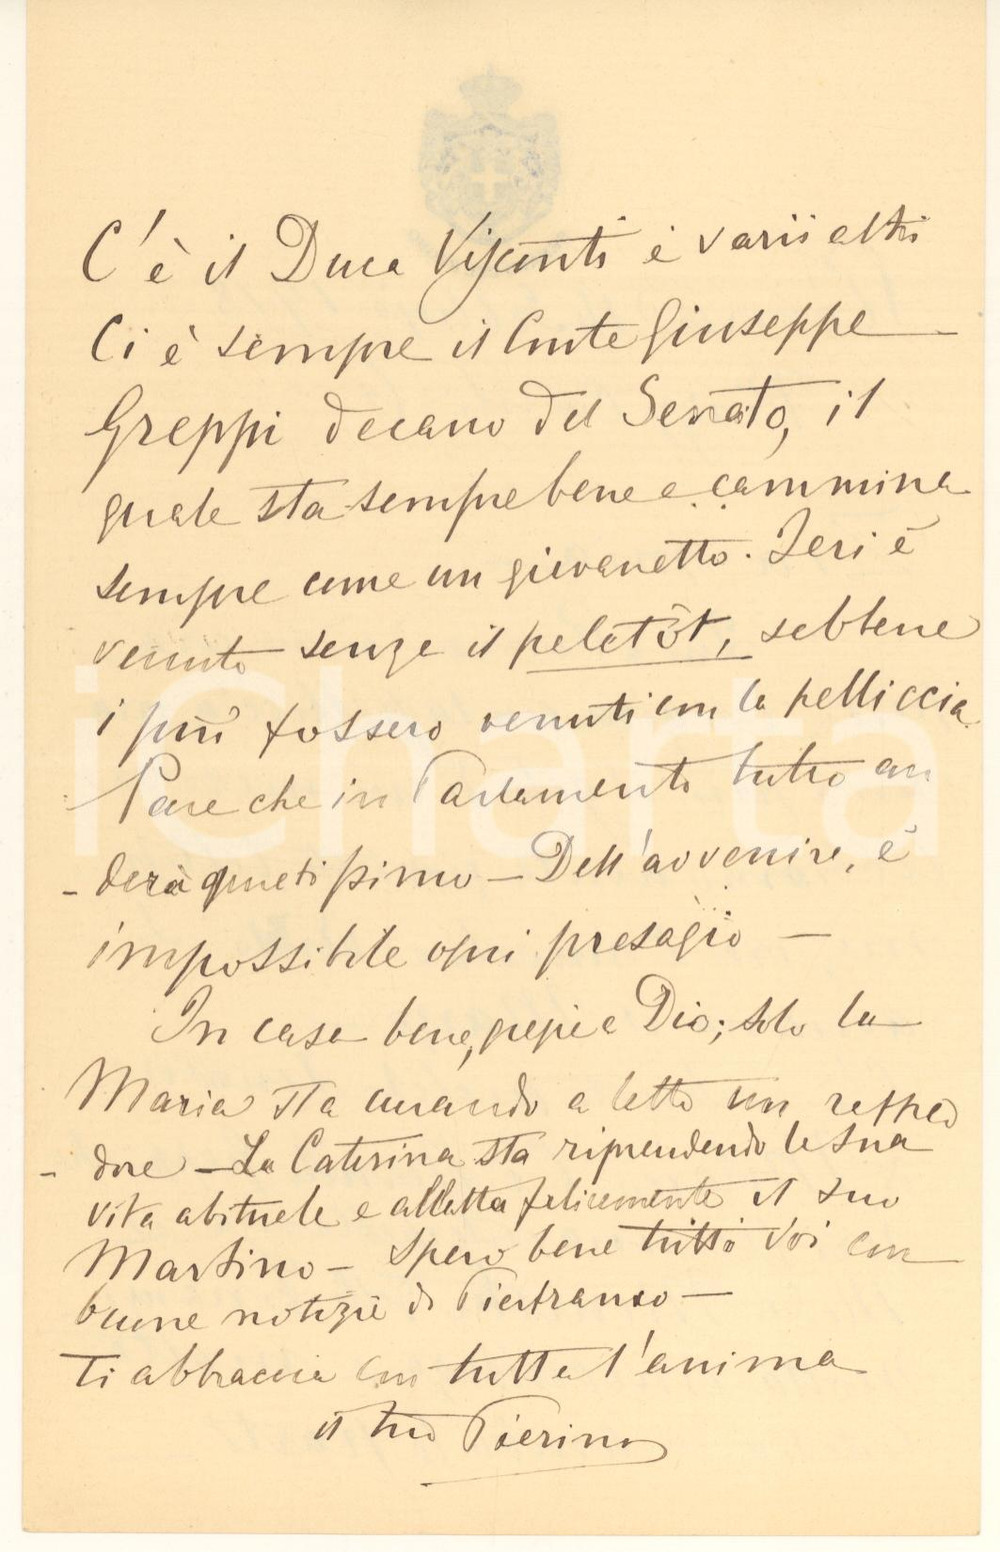 C'è il Duca Visconti e varii altri
Ci è sempre il Conte Giuseppe
Greppi decano del Senato, il
quale sta sempre bene e cammina
sempre come un giovanetto. Ieri è
venuto senza il paletòt, sebbene
i più fossero venuti con la pelliccia.
Pare che in Parlamento tutto an
- derà quietissimo – Dell'avvenire, è
impossibile ogni presagio –
In casa bene, grazie a Dio; solo la
Maria sta curando a letto un raffred
- dore – La Caterina sta riprendendo la sua
vita abituale e allatta felicemente il suo
Martino – Spero bene tutti voi con
buone notizie di Pierfranco –
Ti abbraccia con tutta l'anima
il tuo Pierino
iCharta